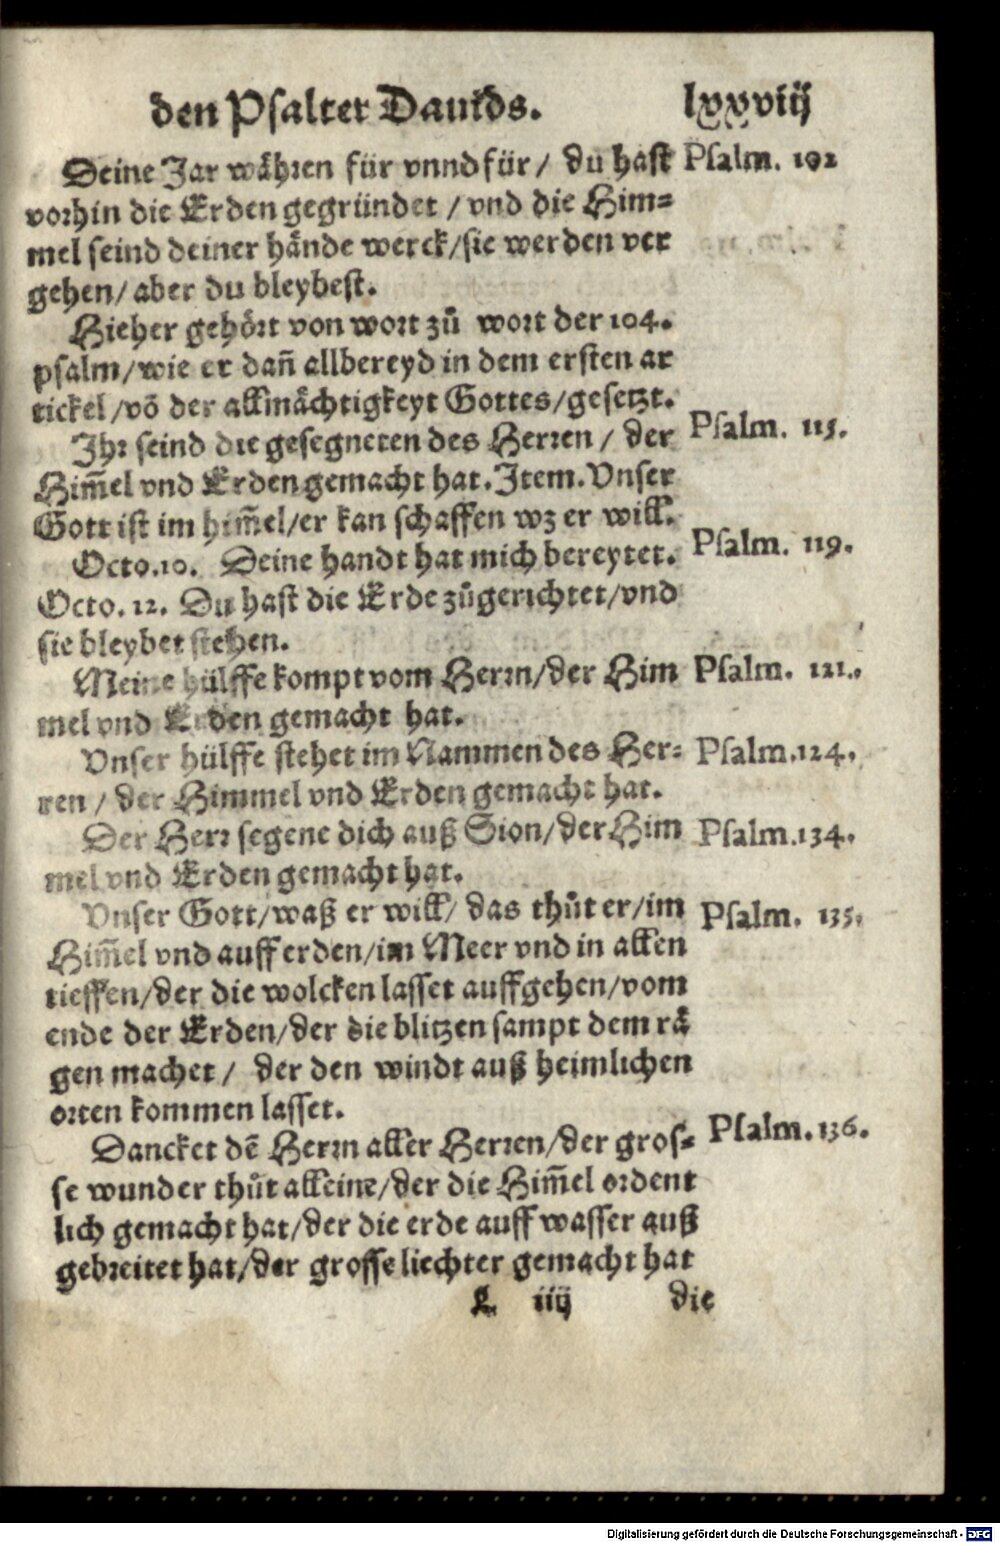 den Psalter Dauids. lxxviij
Deine Jar währen für vnnd für / du hast Psalm. 102
vorhin die Erden gegründet / vnd die Him⸗
mel seind deiner hände werck/sie werden ver
gehen/ aber du bleybest.
Hieher gehört von wort zů wort der 104.
psalm/wie er dañ allbereyd in dem ersten ar
tickel/võ der allmächtigkeyt Gottes/gesetzt.
Ihr seind die gesegneten des Herren / der Psalm. 115.
Him̃el vnd Erden gemacht hat. Item. Vnser
Gott ist im him̃el/er kan schaffen wz er will.
Octo.10. Deine handt hat mich bereytet. Psalm. 119.
Octo. 12. Du hast die Erde zůgerichtet/vnd
sie bleybet stehen.
Meine hülffe kompt vom Herrn/der Him Psalm. 121.
mel vnd Erden gemacht hat.
Vnser hülffe stehet im Nammen des Her⸗ Psalm.124.
ren / der Himmel vnd Erden gemacht hat.
Der Herr segene dich auß Sion/der Him Psalm.134.
mel vnd Erden gemacht hat.
Vnser Gott/waß er will/ das thůt er/im Psalm. 135.
Him̃el vnd auff erden/im Meer vnd in allen
tieffen/der die wolcken lasset auffgehen/vom
ende der Erden/der die blitzen sampt dem rä
gen machet / der den windt auß heimlichen
orten kommen lasset.
Dancket dẽ Herrn aller Herren/der gros⸗ Psalm.136.
se wunder thůt alleine/der die Him̃el ordent
lich gemacht hat/der die erde auff wasser auß
gebreitet hat/der grosse liechter gemacht hat
L iiij die
Digitalisierung gefördert durch die Deutsche Forschungsgemeinschaft - DFG